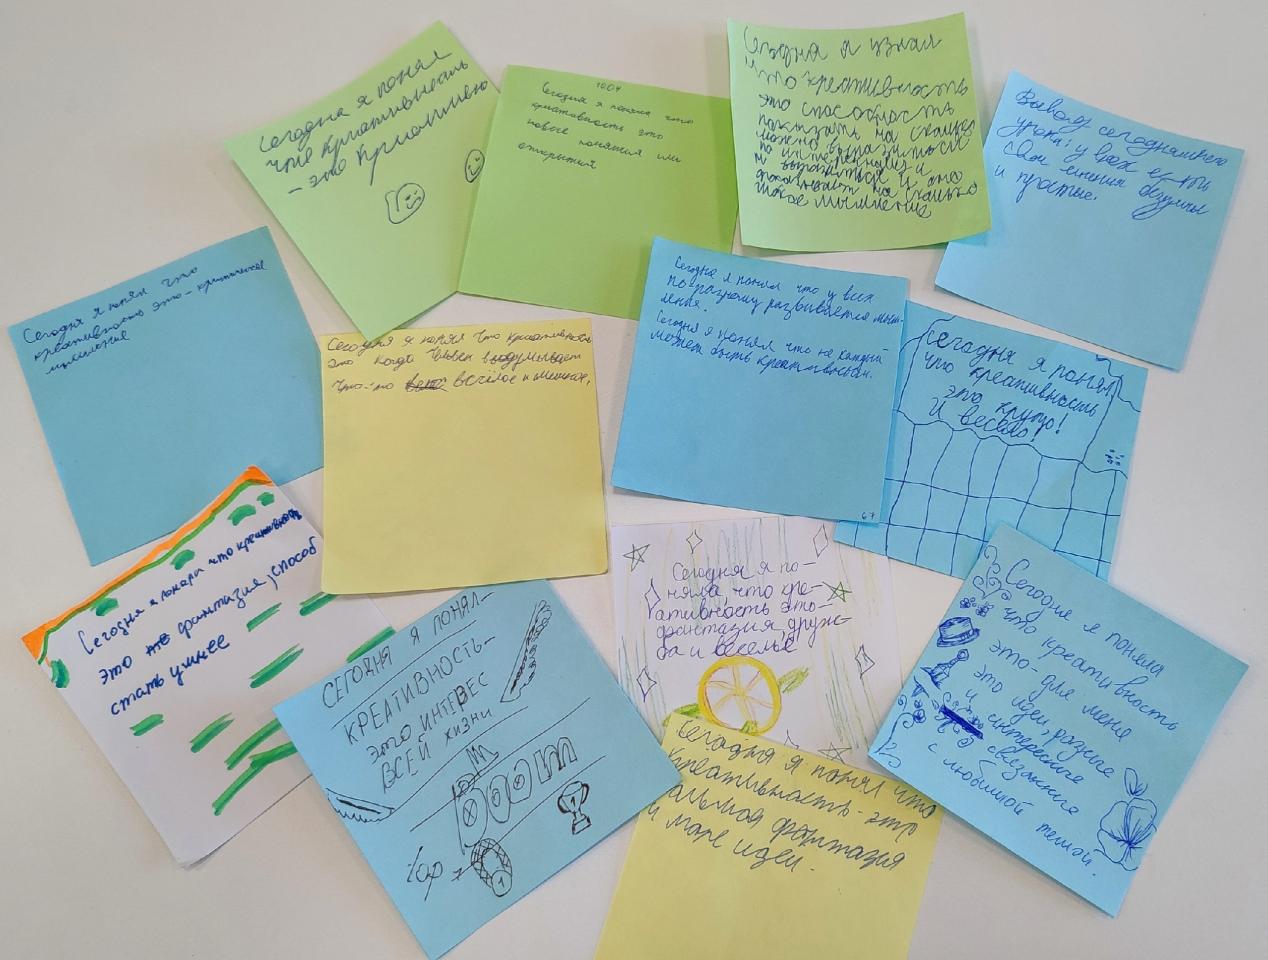 Сегодня я понял
что креативность
- это
1004
Сегодня я поняла что
креативность это
новые понятия или
открытия
Сегодня я узнал
что креативность
это способность
показать на сколько
можно выразиться
по интересному и
и она
показывает на сколько
такое мышление
Вывод сегодняшнего
урока: у всех есть
свои мнения
и простые.
Сегодня я понял что
креативность это - критическое
мышление
Сегодня я понял что креативность
это когда человек выдумывает
что-то весёлое и смешное.
Сегодня я понял что у всех
по разному развивается мыш-
ление.
Сегодня я понял что не каждый
может быть креативным.
67
Сегодня я понял,
что креативность
это круто!
И весело!
Сегодня я понял что креативность
это фантазия, способ
стать умнее
Сегодня я по-
няла, что кре-
ативность это-
фантазия, друж-
ба и веселье
СЕГОДНЯ Я ПОНЯЛ-
КРЕАТИВНОСТЬ-
ЭТО ИНТЕРЕС
ВСЕЙ ЖИЗНИ
1
1
Сегодня я поняла
что креативность
это - для меня
это идеи, разные
и интересные
связанные
с любимой темой.
Сегодня я понял что
креативность - это
фантазия
и море идей.